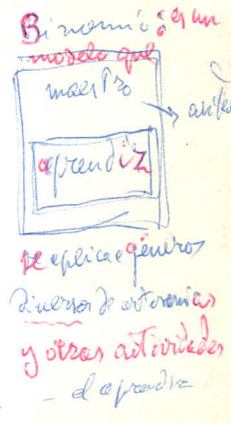 Binomio: es un
modelo que
maestro
aprendiz
se aplica a géneros
diversos de artesanías
y otras actividades
- el aprendiz